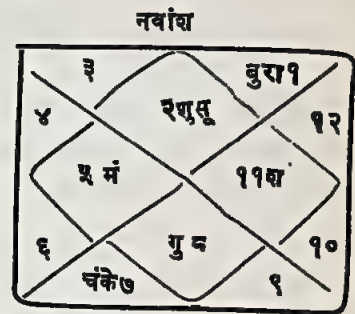 नवांश
३ बुरा१
४ २शुसू १२
५ मं ११श
६ गु ८ १०
चंके७ ९